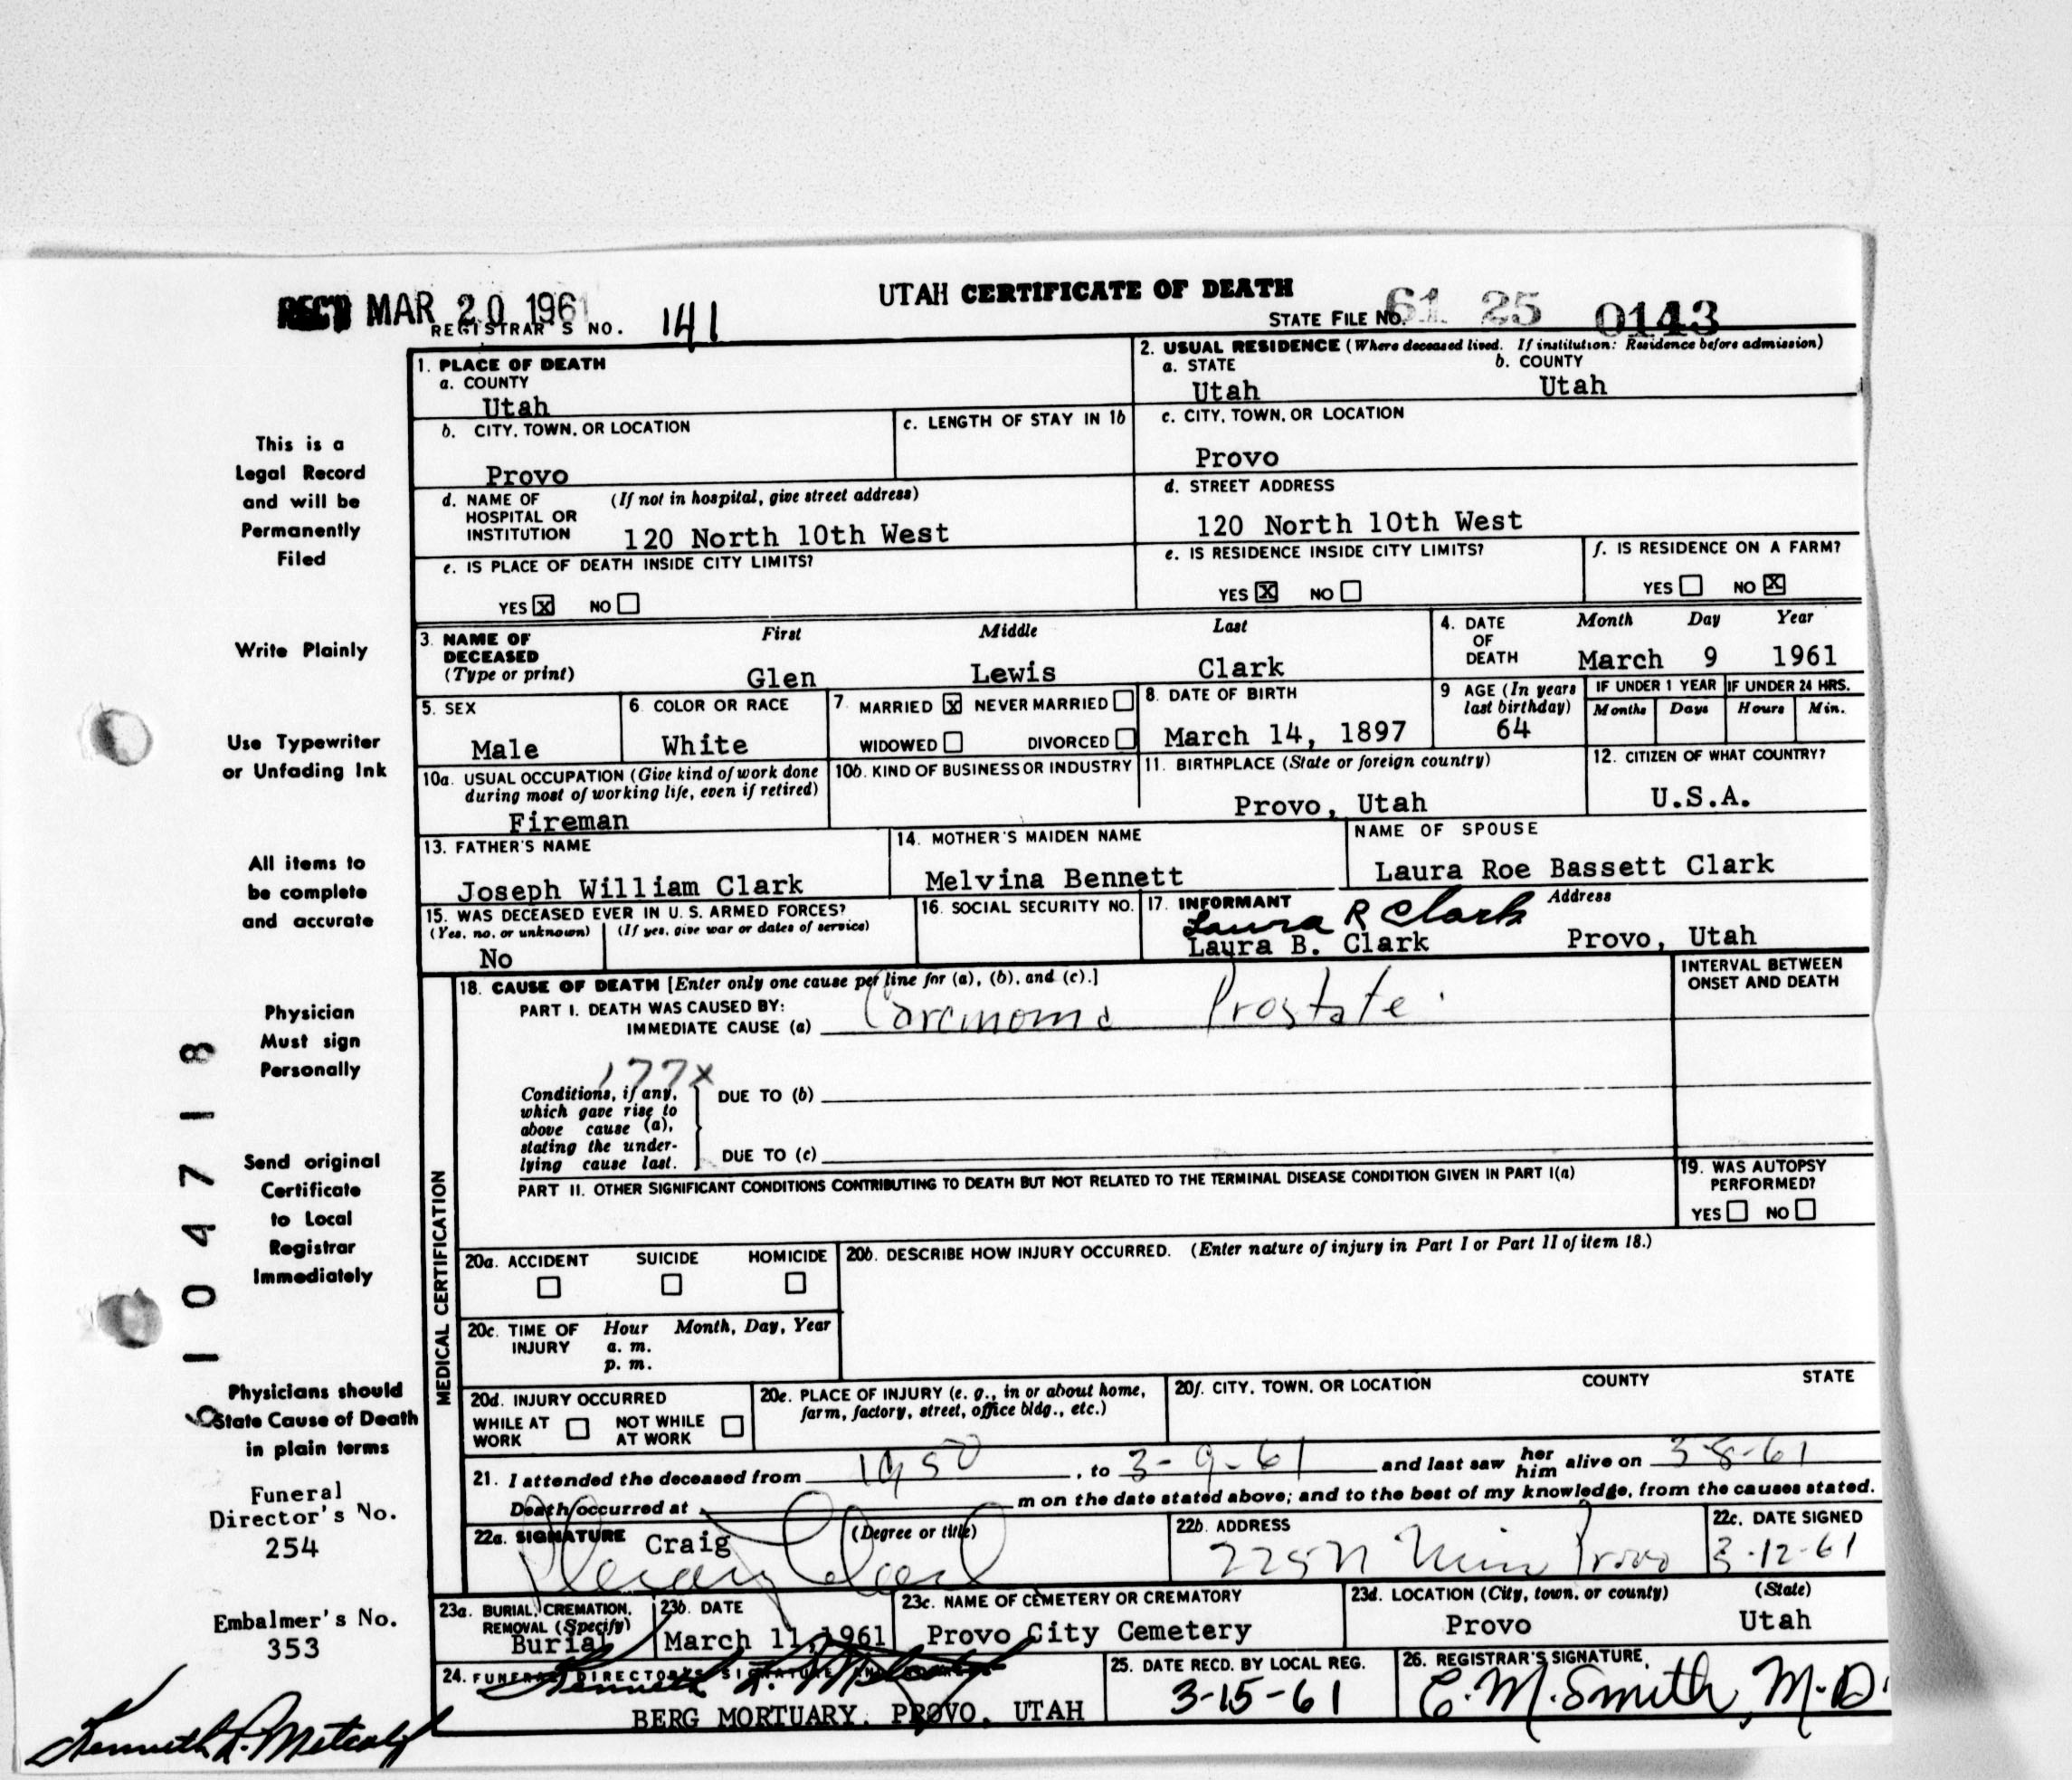 UTAH CERTIFICATE OF DEATH
REC'D MAR 20 1961
REGISTRAR'S NO. 141
STATE FILE NO. 61 25 0143
This is a
Legal Record
and will be
Permanently
Filed
Write Plainly
Use Typewriter
or Unfading Ink
All items to
be complete
and accurate
Physician
Must sign
Personally
Send original
Certificate
to Local
Registrar
Immediately
Physicians should
State Cause of Death
in plain terms
Funeral
Director's No.
254
Embalmer's No.
353
Kenneth L. Metcalf
104718
1. PLACE OF DEATH
a. COUNTY
Utah
b. CITY, TOWN, OR LOCATION
Provo
c. LENGTH OF STAY IN 1b
d. NAME OF (If not in hospital, give street address)
HOSPITAL OR
INSTITUTION 120 North 10th West
e. IS PLACE OF DEATH INSIDE CITY LIMITS?
YES X NO
2. USUAL RESIDENCE (Where deceased lived. If institution: Residence before admission)
a. STATE b. COUNTY
Utah Utah
c. CITY, TOWN, OR LOCATION
Provo
d. STREET ADDRESS
120 North 10th West
e. IS RESIDENCE INSIDE CITY LIMITS?
YES X NO
f. IS RESIDENCE ON A FARM?
YES NO X
3. NAME OF
DECEASED
(Type or print)
First Middle Last
Glen Lewis Clark
4. DATE
OF
DEATH
Month Day Year
March 9 1961
5. SEX
Male
6. COLOR OR RACE
White
7. MARRIED X NEVER MARRIED
WIDOWED DIVORCED
8. DATE OF BIRTH
March 14, 1897
9 AGE (In years
last birthday)
64
IF UNDER 1 YEAR
Months Days
IF UNDER 24 HRS.
Hours Min.
10a. USUAL OCCUPATION (Give kind of work done
during most of working life, even if retired)
Fireman
10b. KIND OF BUSINESS OR INDUSTRY
11. BIRTHPLACE (State or foreign country)
Provo, Utah
12. CITIZEN OF WHAT COUNTRY?
U.S.A.
13. FATHER'S NAME
Joseph William Clark
14. MOTHER'S MAIDEN NAME
Melvina Bennett
NAME OF SPOUSE
Laura Roe Bassett Clark
15. WAS DECEASED EVER IN U. S. ARMED FORCES?
(Yes, no, or unknown) (If yes, give war or dates of service)
No
16. SOCIAL SECURITY NO.
17. INFORMANT Address
Laura R Clark
Laura B. Clark Provo, Utah
MEDICAL CERTIFICATION
18. CAUSE OF DEATH [Enter only one cause per line for (a), (b), and (c).]
PART I. DEATH WAS CAUSED BY:
IMMEDIATE CAUSE (a) Carcinoma Prostate
INTERVAL BETWEEN
ONSET AND DEATH
177x
Conditions, if any,
which gave rise to
above cause (a),
stating the under-
lying cause last.
DUE TO (b)
DUE TO (c)
PART II. OTHER SIGNIFICANT CONDITIONS CONTRIBUTING TO DEATH BUT NOT RELATED TO THE TERMINAL DISEASE CONDITION GIVEN IN PART I(a)
19. WAS AUTOPSY
PERFORMED?
YES NO
20a. ACCIDENT SUICIDE HOMICIDE
20b. DESCRIBE HOW INJURY OCCURRED. (Enter nature of injury in Part I or Part II of item 18.)
20c. TIME OF Hour Month, Day, Year
INJURY a. m.
p. m.
20d. INJURY OCCURRED
WHILE AT
WORK
NOT WHILE
AT WORK
20e. PLACE OF INJURY (e. g., in or about home,
farm, factory, street, office bldg., etc.)
20f. CITY, TOWN, OR LOCATION COUNTY STATE
21. I attended the deceased from 1950, to 3-9-61 and last saw her him alive on 3-8-61
Death occurred at m on the date stated above; and to the best of my knowledge, from the causes stated.
22a. SIGNATURE Craig (Degree or title)
22b. ADDRESS
225 N Provo
22c. DATE SIGNED
3-12-61
23a. BURIAL, CREMATION,
REMOVAL (Specify)
Burial
23b. DATE
March 11, 1961
23c. NAME OF CEMETERY OR CREMATORY
Provo City Cemetery
23d. LOCATION (City, town, or county) (State)
Provo Utah
24. FUNERAL DIRECTOR'S SIGNATURE
BERG MORTUARY, PROVO, UTAH
25. DATE RECD. BY LOCAL REG.
3-15-61
26. REGISTRAR'S SIGNATURE
E. M. Smith, M.D.